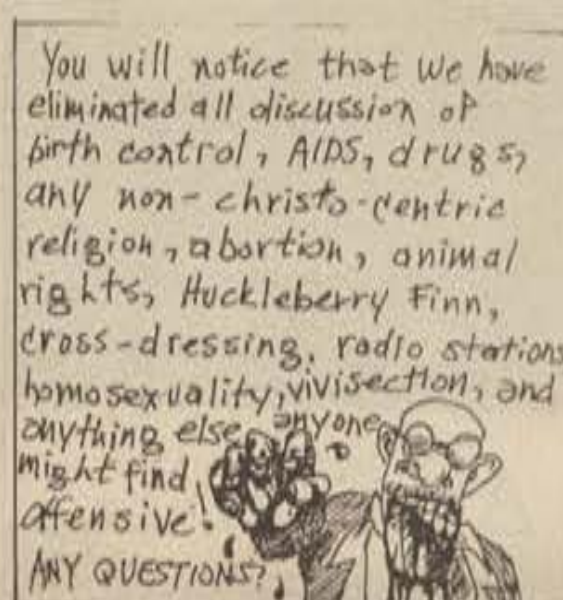 You will notice that we have
eliminated all discussion of
birth control, AIDS, drugs,
any non-christo-centric
religion, abortion, animal
rights, Huckleberry Finn,
cross-dressing, radio stations
homosexuality, vivisection, and
anything else anyone
might find
offensive!
ANY QUESTIONS?